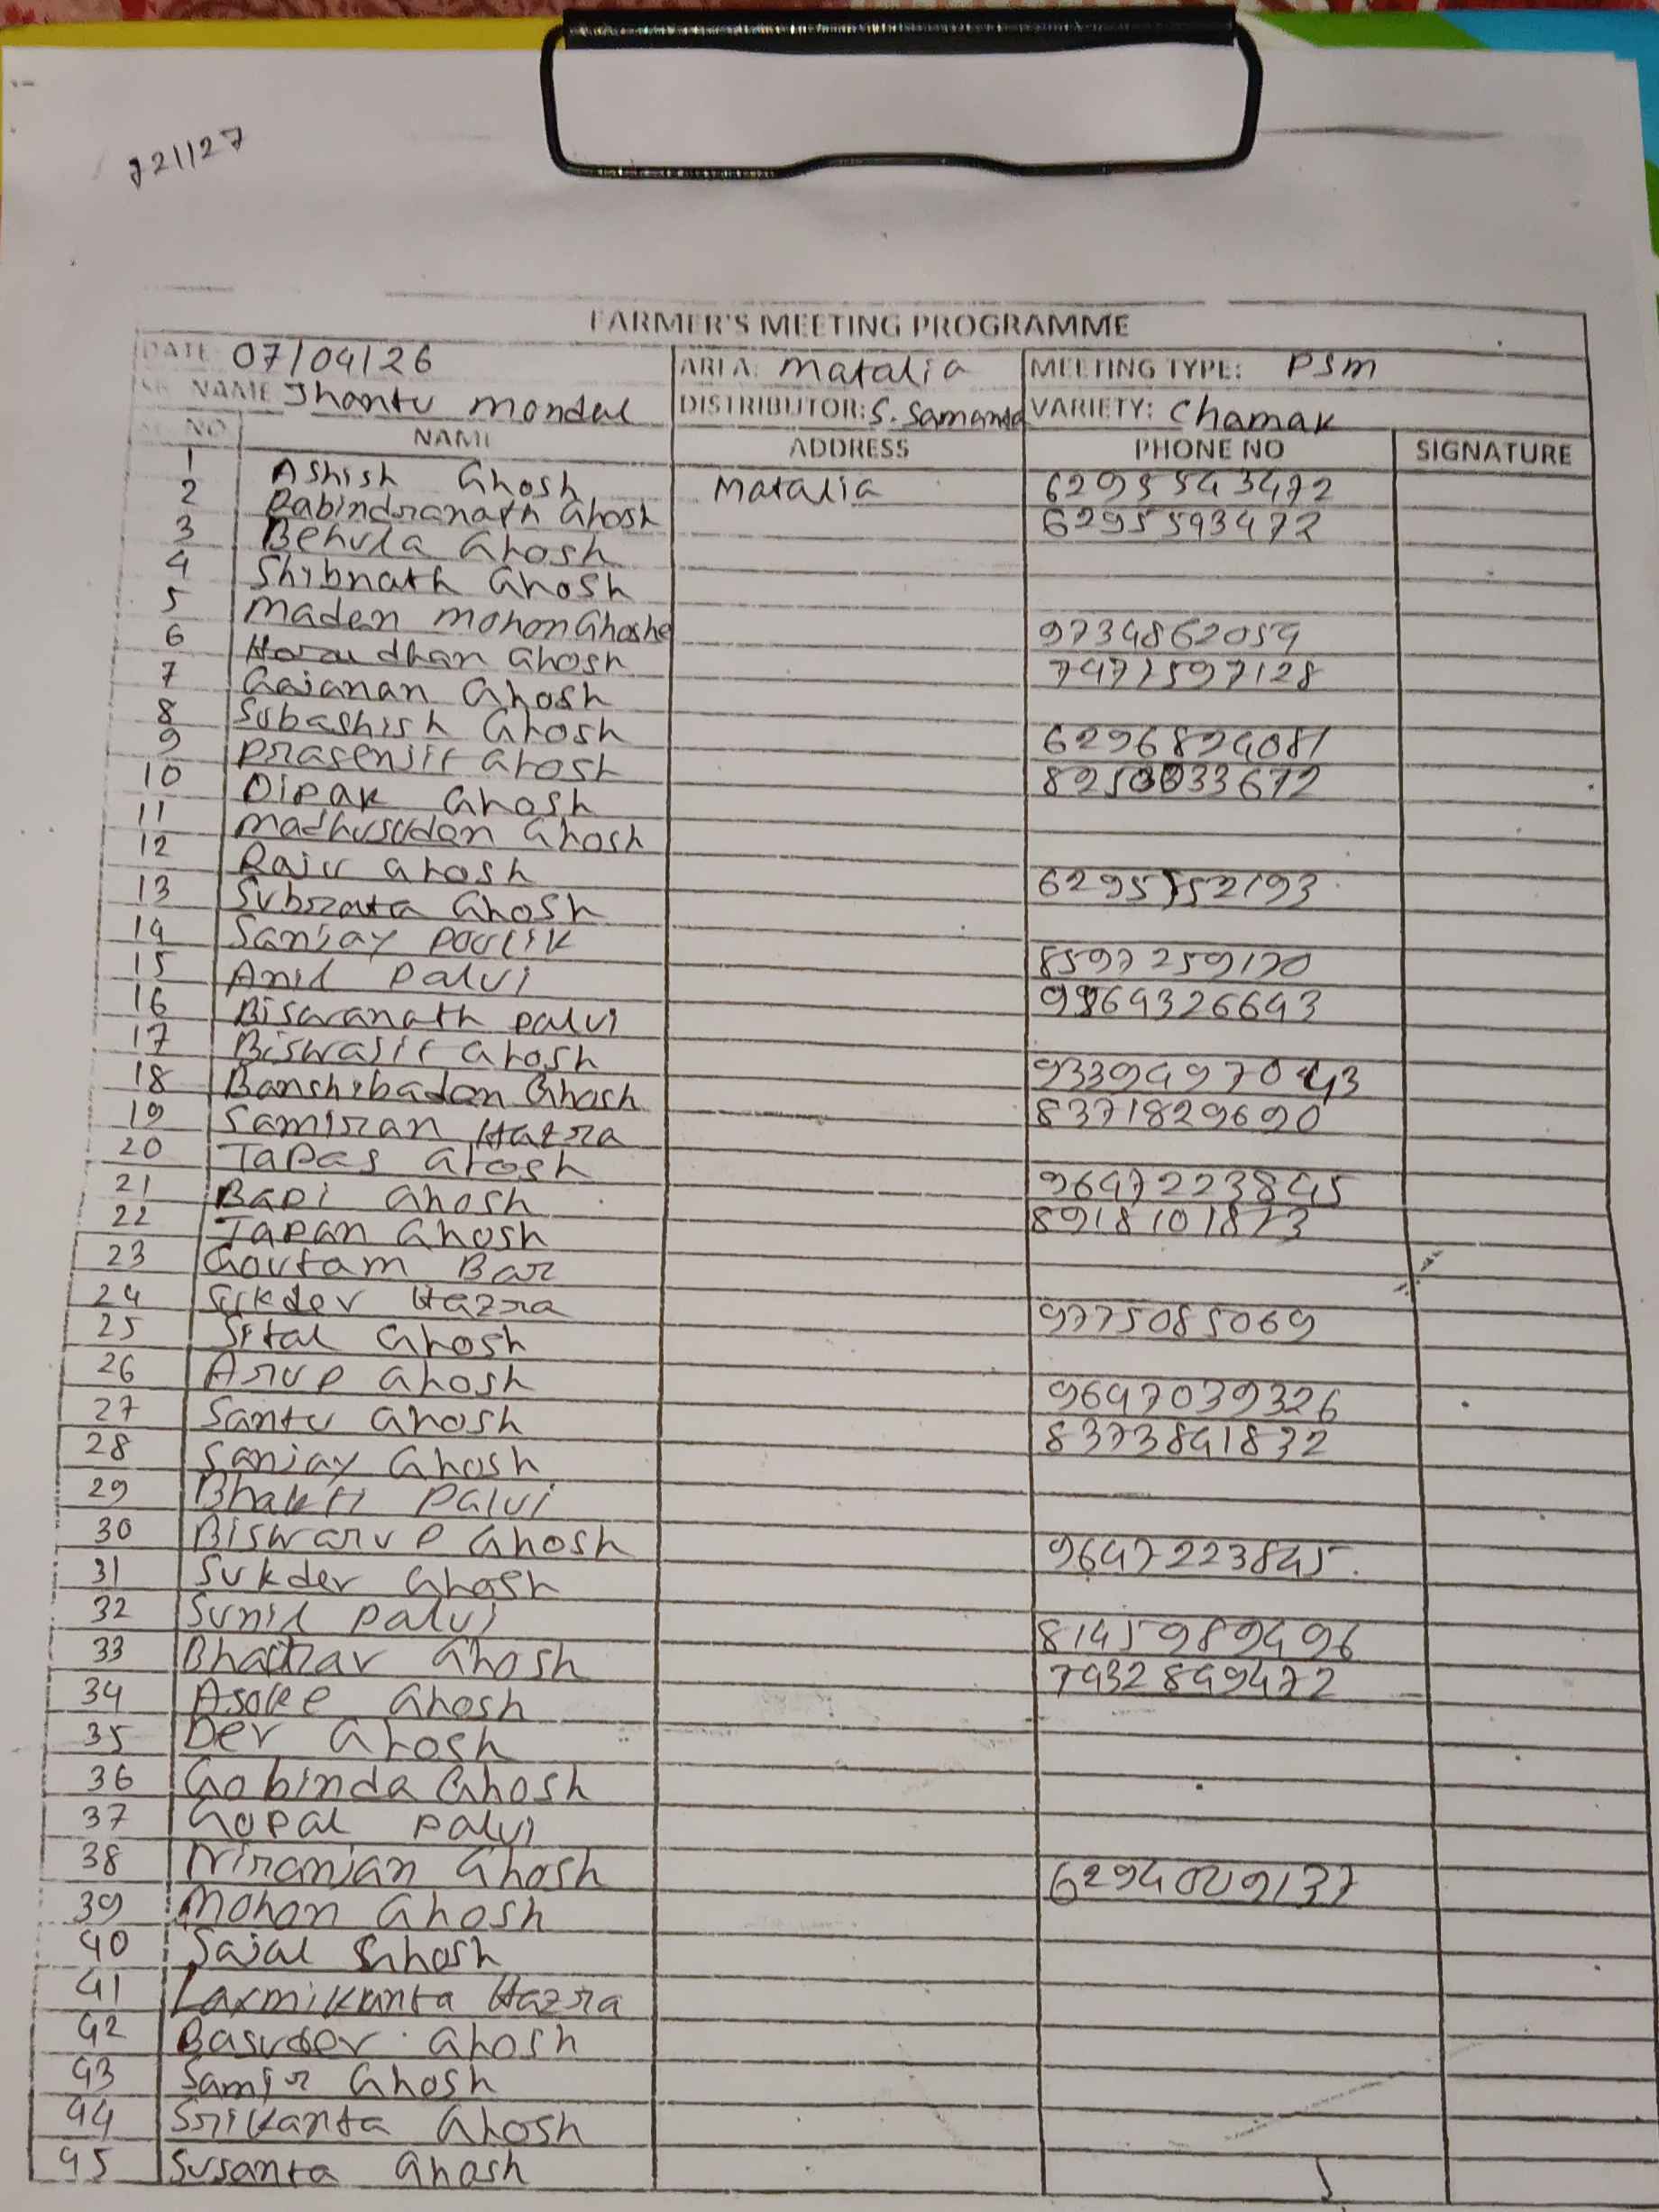 721127
FARMER'S MEETING PROGRAMME
DATE 07/04/26 AREA: Matalia MEETING TYPE: PSM
NAME Jhantu Mondal DISTRIBUTOR: S. Samanta VARIETY: Chamak
SL NO NAME ADDRESS PHONE NO SIGNATURE
1 Ashish Ghosh Matalia 6295543472
2 Rabindranath Ghosh 6295593472
3 Behula Ghosh
4 Shibnath Ghosh
5 Madan Mohon Ghosh 9734862059
6 Haradhan Ghosh 7477597128
7 Gajanan Ghosh
8 Subashish Ghosh 6296894081
9 Prasenjit Ghosh
10 Dipak Ghosh
11 Madhusudan Ghosh
12 Raju Ghosh
13 Subrata Ghosh
14 Sanjay
15 Anil Palui
16 Biswanath Palui
17 Biswajit Ghosh
18 Banshibadan Ghosh
19 Samiran Hazra 8371829690
20 Tapas Ghosh
21 Bapi Ghosh 9647223845
22 Tapan Ghosh 8918101873
23 Goutam Bar
24 Sukdev Hazra
25 Sital Ghosh 9775085069
26 Arup Ghosh
27 Santu Ghosh 9647039326
28 Sanjay Ghosh 8373841832
29 Bhakti Palui
30 Biswarup Ghosh
31 Sukdev Ghosh 9647223845
32 Sunil Palui
33 Ghosh 8145989496
34 Asoke Ghosh 7432849472
35 Dev Ghosh
36 Gobinda Ghosh
37 Gopal Palui
38 Niranjan Ghosh
39 Mohon Ghosh
40 Sajal Ghosh
41 Laxmikanta Hazra
42 Basudev Ghosh
43 Samir Ghosh
44 Srikanta Ghosh
45 Susanta Ghosh